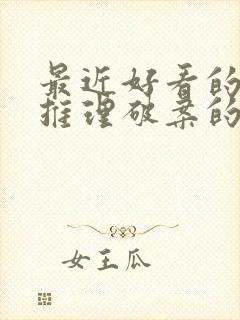 最近好看的
推理破案的
女王瓜